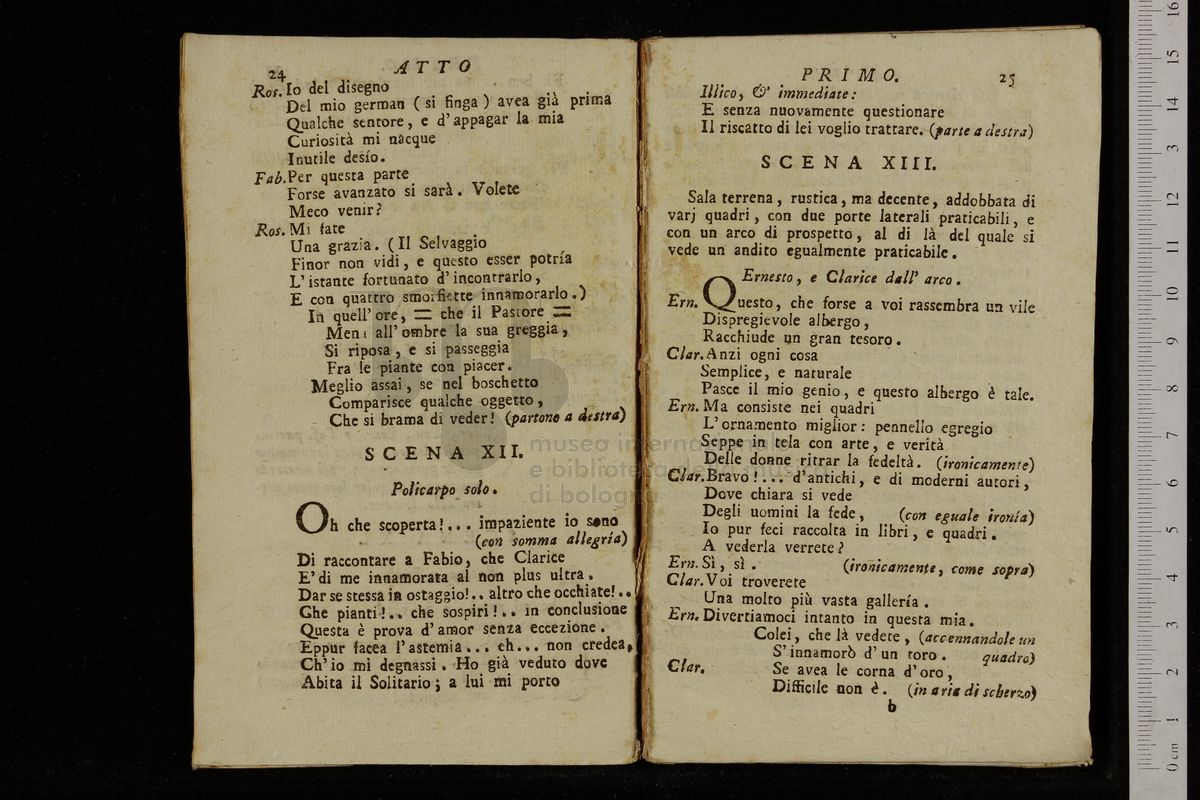 24
ATTO
Ros. Io del disegno
Del mio german ( si finga ) avea già prima
Qualche sentore, e d'appagar la mia
Curiosità mi nacque
Inutile desío.
Fab. Per questa parte
Forse avanzato si sarà. Volete
Meco venir?
Ros. Mi fate
Una grazia. ( Il Selvaggio
Finor non vidi, e questo esser potría
L'istante fortunato d'incontrarlo,
E con quattro smorfiette innamorarlo.)
In quell'ore, = che il Pastore =
Mena all'ombre la sua greggia,
Si riposa, e si passeggia
Fra le piante con piacer.
Meglio assai, se nel boschetto
Comparisce qualche oggetto,
Che si brama di veder! (partono a destra)
SCENA XII.
Policarpo solo.
Oh che scoperta!... impaziente io sono
(con somma allegría)
Di raccontare a Fabio, che Clarice
E' di me innamorata al non plus ultra.
Dar se stessa in ostaggio!.. altro che occhiate!..
Che pianti!.. che sospiri!.. in conclusione
Questa è prova d'amor senza eccezione.
Eppur facea l'astemia... eh... non credea,
Ch'io mi degnassi. Ho già veduto dove
Abita il Solitario; a lui mi porto
PRIMO.
25
Illico, & immediate:
E senza nuovamente questionare
Il riscatto di lei voglio trattare. (parte a destra)
SCENA XIII.
Sala terrena, rustica, ma decente, addobbata di
varj quadri, con due porte laterali praticabili, e
con un arco di prospetto, al di là del quale si
vede un andito egualmente praticabile.
Ernesto, e Clarice dall' arco.
Ern. Questo, che forse a voi rassembra un vile
Dispregievole albergo,
Racchiude un gran tesoro.
Clar. Anzi ogni cosa
Semplice, e naturale
Pasce il mio genio, e questo albergo è tale.
Ern. Ma consiste nei quadri
L'ornamento miglior: pennello egregio
Seppe in tela con arte, e verità
Delle donne ritrar la fedeltà. (ironicamente)
Clar. Bravo!... d'antichi, e di moderni autori,
Dove chiara si vede
Degli uomini la fede, (con eguale ironía)
Io pur feci raccolta in libri, e quadri.
A vederla verrete?
Ern. Sì, sì. (ironicamente, come sopra)
Clar. Voi troverete
Una molto più vasta gallería.
Ern. Divertiamoci intanto in questa mia.
Colei, che là vedete, (accennandole un
S'innamorò d'un toro. quadro)
Clar. Se avea le corna d'oro,
Difficile non è. (in aria di scherzo)
b
museo internazionale
e biblioteca della musica
di bologna